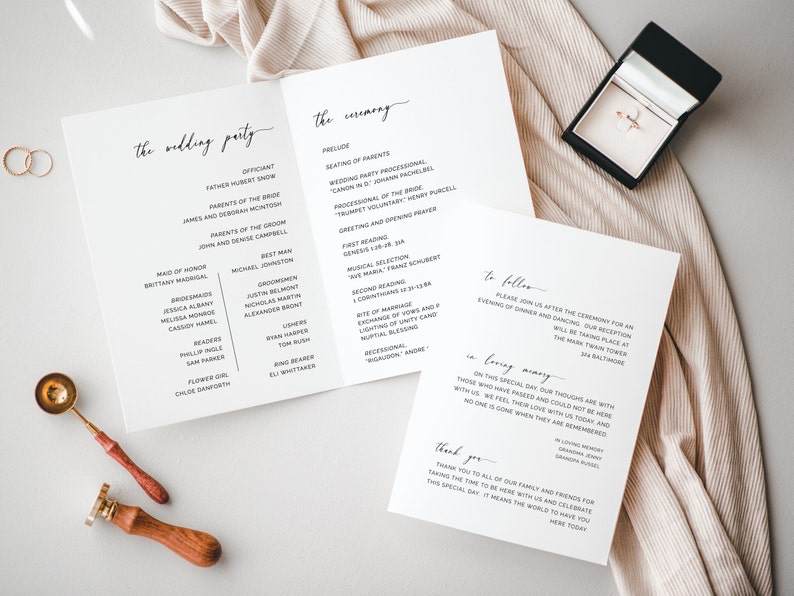 the wedding party
OFFICIANT
FATHER HUBERT SNOW
PARENTS OF THE BRIDE
JAMES AND DEBORAH MCINTOSH
PARENTS OF THE GROOM
JOHN AND DENISE CAMPBELL
MAID OF HONOR
BRITTANY MADRIGAL
BRIDESMAIDS
JESSICA ALBANY
MELISSA MONROE
CASSIDY HAMEL
READERS
PHILLIP INGLE
SAM PARKER
FLOWER GIRL
CHLOE DANFORTH
BEST MAN
MICHAEL JOHNSTON
GROOMSMEN
JUSTIN BELMONT
NICHOLAS MARTIN
ALEXANDER BRONT
USHERS
RYAN HARPER
TOM RUSH
RING BEARER
ELI WHITTAKER
the ceremony
PRELUDE
SEATING OF PARENTS
WEDDING PARTY PROCESSIONAL,
"CANON IN D," JOHANN PACHELBEL
PROCESSIONAL OF THE BRIDE,
"TRUMPET VOLUNTARY," HENRY PURCELL
GREETING AND OPENING PRAYER
FIRST READING,
GENESIS 1:26-28, 31A
MUSICAL SELECTION,
"AVE MARIA," FRANZ SCHUBERT
SECOND READING,
1 CORINTHIANS 12:31-13:8A
RITE OF MARRIAGE
EXCHANGE OF VOWS AND
LIGHTING OF UNITY CAND
NUPTIAL BLESSING
RECESSIONAL,
"RIGAUDON," ANDRE
to follow
PLEASE JOIN US AFTER THE CEREMONY FOR AN
EVENING OF DINNER AND DANCING. OUR RECEPTION
WILL BE TAKING PLACE AT
THE MARK TWAIN TOWER
324 BALTIMORE
in loving memory
ON THIS SPECIAL DAY, OUR THOUGHS ARE WITH
THOSE WHO HAVE PASEED AND COULD NOT BE HERE
WITH US. WE FEEL THEIR LOVE WITH US TODAY, AND
NO ONE IS GONE WHEN THEY ARE REMEMBERED.
IN LOVING MEMORY
GRANDMA JENNY
GRANDPA RUSSEL
thank you
THANK YOU TO ALL OF OUR FAMILY AND FRIENDS FOR
TAKING THE TIME TO BE HERE WITH US AND CELEBRATE
THIS SPECIAL DAY. IT MEANS THE WORLD TO HAVE YOU
HERE TODAY.